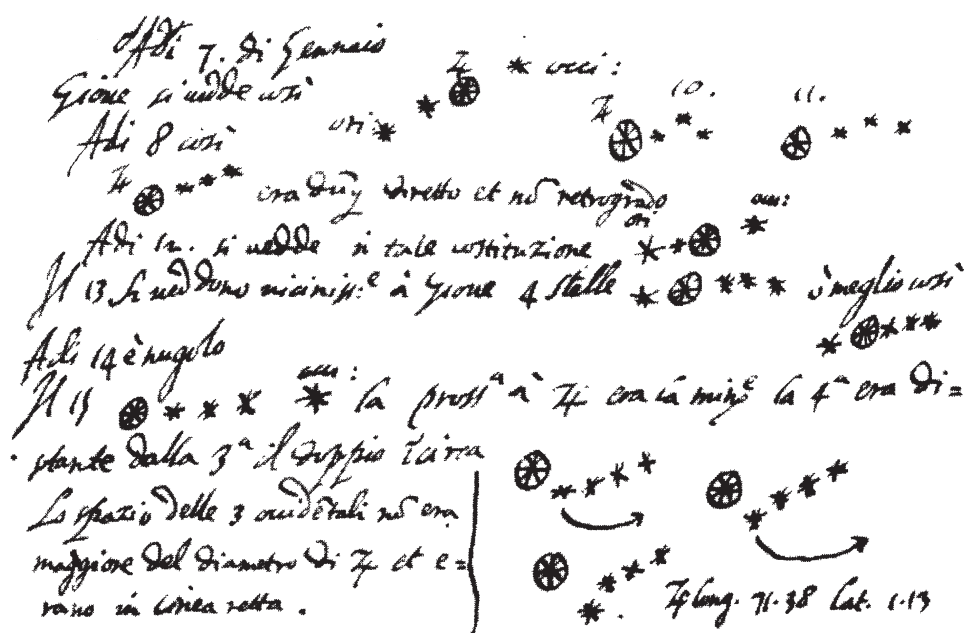 Adi 7. di Gennaio
Gioue si uedde così
♃ * occi:
ori:
Adi 8 così
♃ 10. 11.
♃ era dūq diretto et nō retrogrado
Adi 12. si uedde in tale costituzione ori. occ:
Il 13 si ueddono uiciniss.e à Gioue 4 stelle ò meglio così
Adi 14 è nugolo
Il 15 occ: la pross.a à ♃ era la min.e la 4.a era di=
stante dalla 3.a il doppio circa
Lo spazio delle 3 occidētali nō era
maggiore del diametro di ♃ et e=
rano in linea retta.
♃ long. 71.38 lat. 1.13